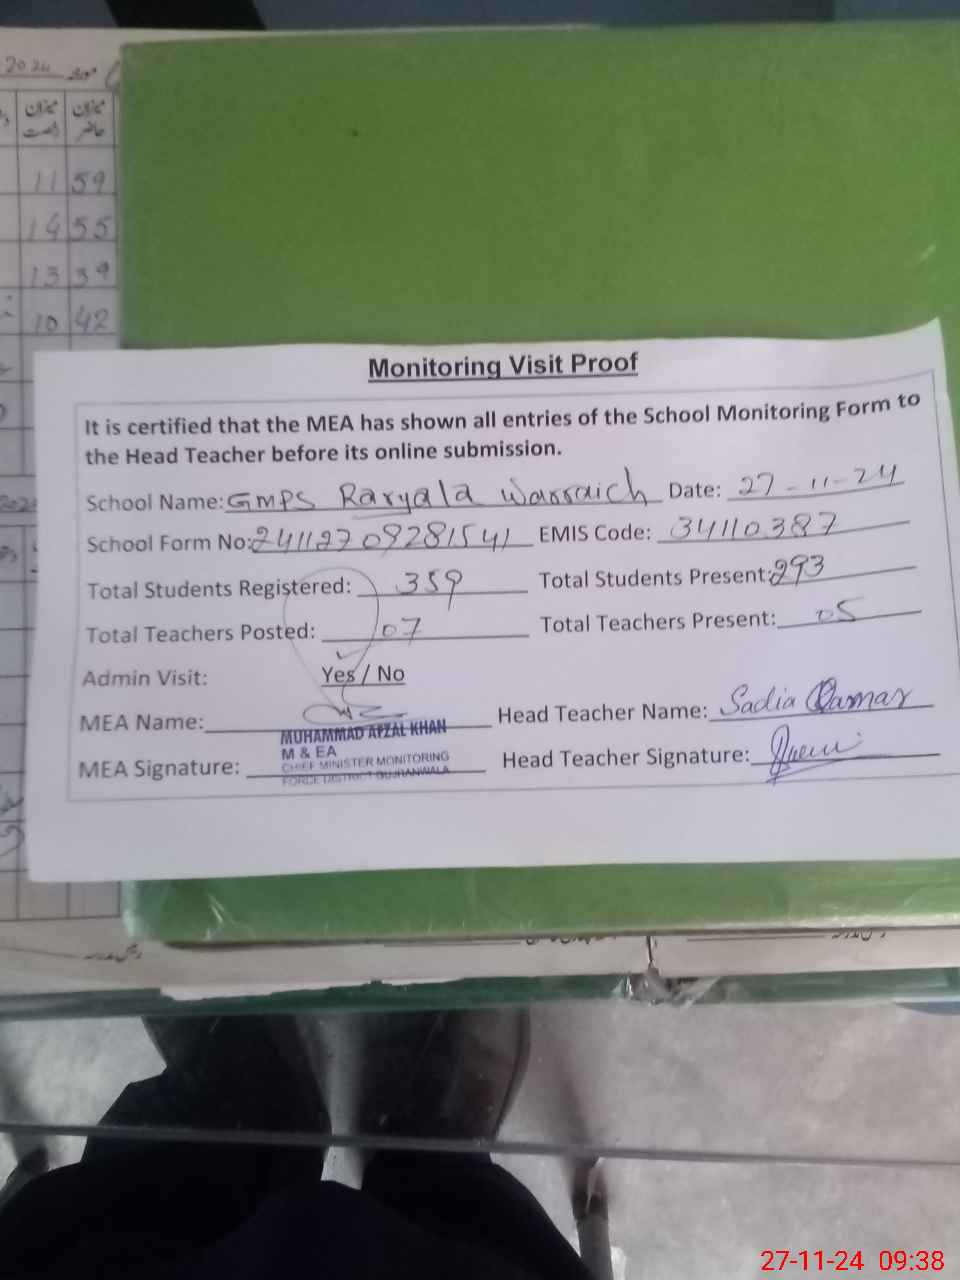 2024
میزان میزان
حاضر
11 59
14 55
13 39
10 42
Monitoring Visit Proof
It is certified that the MEA has shown all entries of the School Monitoring Form to
the Head Teacher before its online submission.
School Name: GMPS Raryala Warraich Date: 27-11-24
School Form No: 24112709281541 EMIS Code: 34110387
Total Students Registered: 359 Total Students Present: 293
Total Teachers Posted: 07 Total Teachers Present: 05
Admin Visit: Yes / No
MEA Name: Head Teacher Name: Sadia Qamar
MUHAMMAD AFZAL KHAN
M & EA
MEA Signature: Head Teacher Signature:
CHIEF MINISTER MONITORING
FORCE DISTRICT GUJRANWALA
27-11-24 09:38